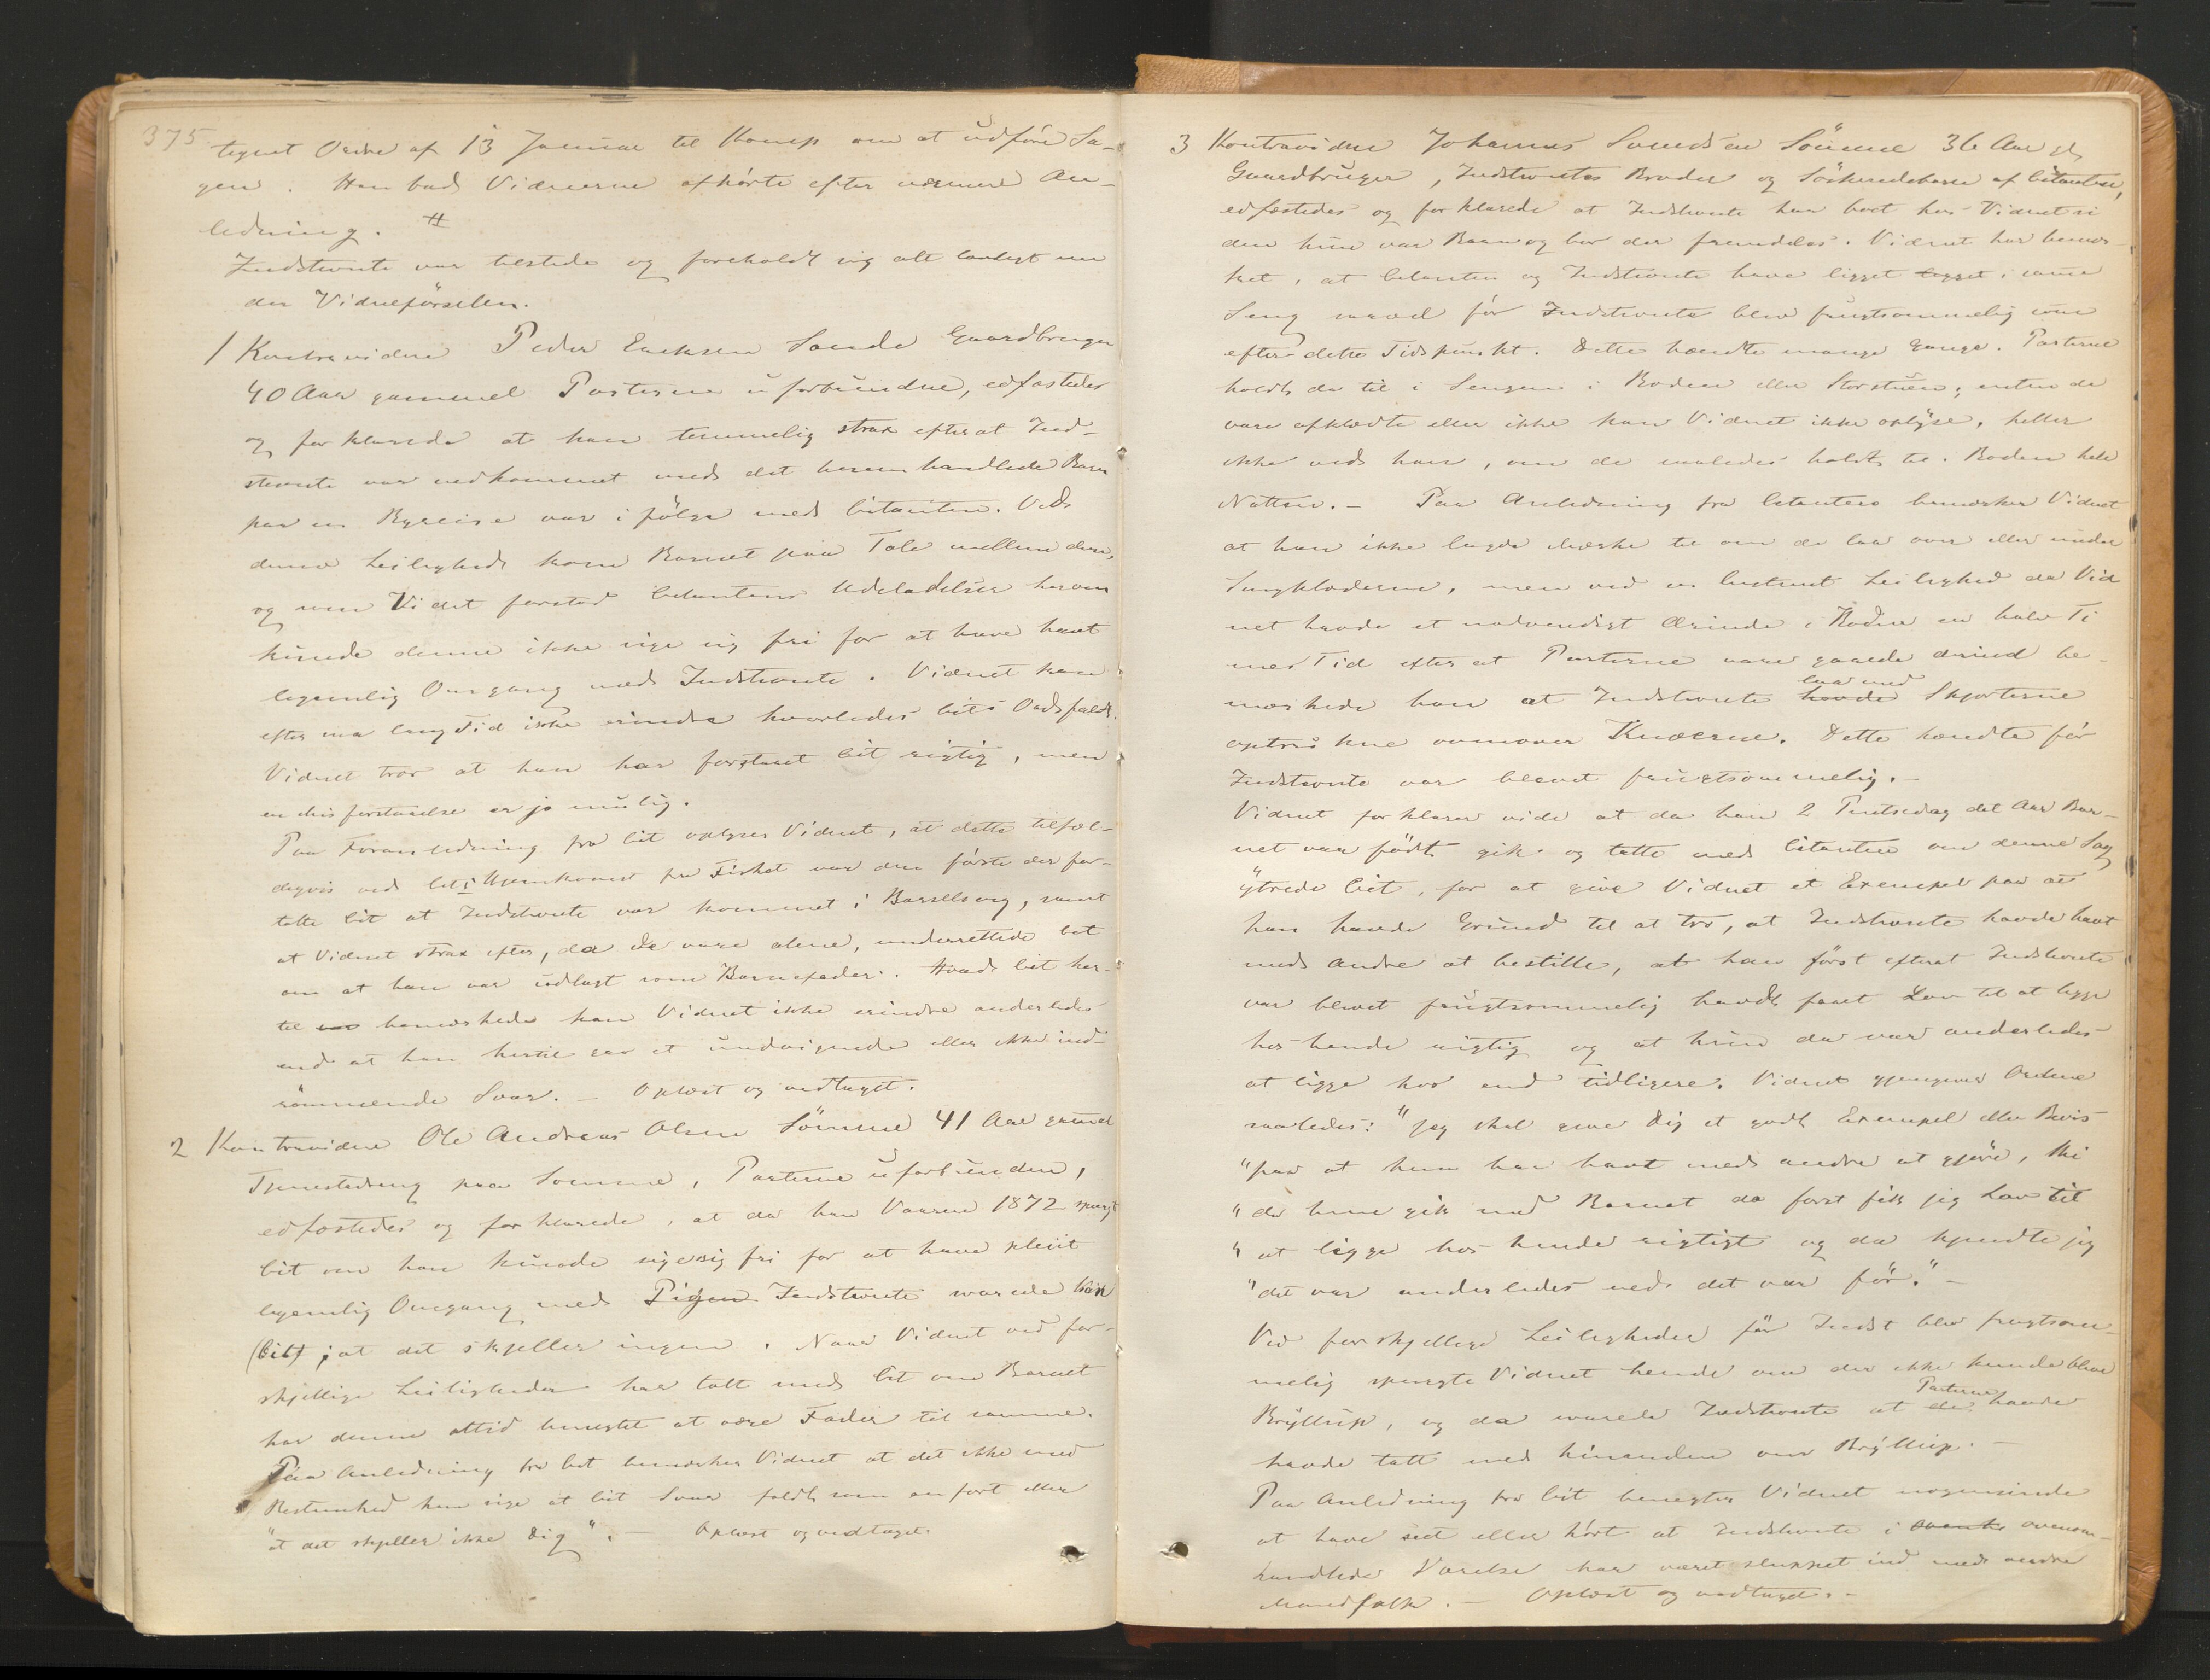 375
tegnet Ordre af 13 Januar til Komp om at udføre Sa-
gen. Han bad Vidnerne afhørte efter nærmere An-
ledning. #
Indstevnte var tilstede og foreholdt sig alt lovligt un
der Vidneførselen.
1 Kontravidne Peder Eriksen Sande Gaardbruger
40 Aar gammel Parterne uforbundne, edfæstedes
og forklarede at han temmelig strax efterat Ind-
stevnte var nedkommet med det herom handlede Barn
paa en Byreise var i følge med Citanten. Ved
denne Leilighed kom Barnet paa Tale mellem dem,
og som Vidnet forstod Citantens Udeladelser herom
kunde denne ikke sige sig fri for at have havt
legemlig Omgang med Indstevnte. Vidnet kan
efter saa lang Tid ikke erindre hvorledes Cits Ord faldt.
Vidnet tror at han har forstaaet Cit rigtig, men
en Misforstaaelse er jo mulig.
Paa Foranledning fra Cit oplyser Vidnet, at dette tilfæl-
digvis ved Cits Hjemkomst fra Fisket var den første der for-
talte Cit at Indstevnte var kommet i Barselseng, samt
at Vidnet strax efter, da de vare alene, underrettede Cit
om at han var udlagt som Barnefader. Hvad Cit her-
til bemærkede kan Vidnet ikke erindre anderledes
end at han hertil gav et undvigende eller ikke ind-
rømmende Svar. – Oplæst og vedtaget.
2 Kontravidne Ole Andreas Olsen Sønne 41 Aar gammel
Tjenestedreng paa Sønne, Parterne uforbunden,
edfæstedes og forklarede, at da han Vaaren 1872 spurgt
Cit om han kunde sige sig fri for at have pleiit
legemlig Omgang med Pigen Indstevnte svarede han
(Cit) ; at det skjeller ingen. Naar Vidnet ved for-
skjellige Leiligheder har talt med Cit om Barnet
har denne altid benegtet at være Fader til samme.
Paa Anledning fra Cit bemærker Vidnet at det ikke med
Bestemthed kan sige at Cit Svar faldt som anført eller
"at det skjeller ikke dig". – Oplæst og vedtaget.
3 Kontravidne Johannes Sønne 36 Aar gl
Gaardbruger, Indstevntes Broder og Søskendebarn af Citanten,
edfæstedes og forklarede at Indstevnte har boet hos Vidnet si
den hun var Barn og bor der fremdeles. Vidnet har bemær
ket, at Citanten og Indstevnte have ligget ligget i samme
Seng saavel før Indstevnte blev frugtsommelig som
efter dette Tidspunkt. Dette hændte mange Gange. Parterne
holdt da til i Sengen i Boden eller Storstuen; enten de
vare afklædte eller ikke kan Vidnet ikke oplyse, heller
ikke ved han, om de saaledes holdt til i Boden hele
Natten. – Paa Anledning fra Citanten bemærker Vidnet
at han ikke lagde Mærke til om de laa over eller under
Sengklæderne, men ved en bestemt Leilighed da Vid
net havde et nødvendigt Ærinde i Boden en halv Ti
mes Tid efter at Parterne vare gaaede derind be-
mærkede han at Indstevnte havde laa med Skjørterne
optrukne ovenover Knæerne. Dette hændte før
Indstevnte var blevet frugtsommelig. –
Vidnet forklarer vide at da han 2 Pintsedag det Aar Bar-
net var født gik og talte med Citanten om denne Sag
ytrede Cit, for at give Vidnet et Exempel paa at
han havde Grund til at tro, at Indstevnte havde havt
med Andre at bestille, at han først efterat Indstevnte
var blevet frugtsommelig havde faaet Lov til at ligge
hos hende rigtig og at hun da var anderledes
at ligge hos end tidligere. Vidnet gjengiver Ordene
saaledes: "jeg skal give Dig et godt Exempel eller Bevis
"paa at hun har havt med andre at gjøre, thi
"da hun gik med Barnet da først fik jeg Lov til
"at ligge hos hende rigtigt og da kjendte jeg
"det var anderledes end det var før." –
Ved forskjellige Leiligheder før Indst blev frugtsom-
melig spurgte Vidnet hende om der ikke kunde blive
Bryllup, og da svarede Indstevnte at de Parterne havde
havde talt med hinanden om Bryllup. –
Paa Anledning fra Cit benegter Vidnet nogensinde
at have seet eller hørt at Indstevnte i ovenom-
handlede Værelse har været sluppet ind med andre
Mandfolk. – Oplæst og vedtaget. –